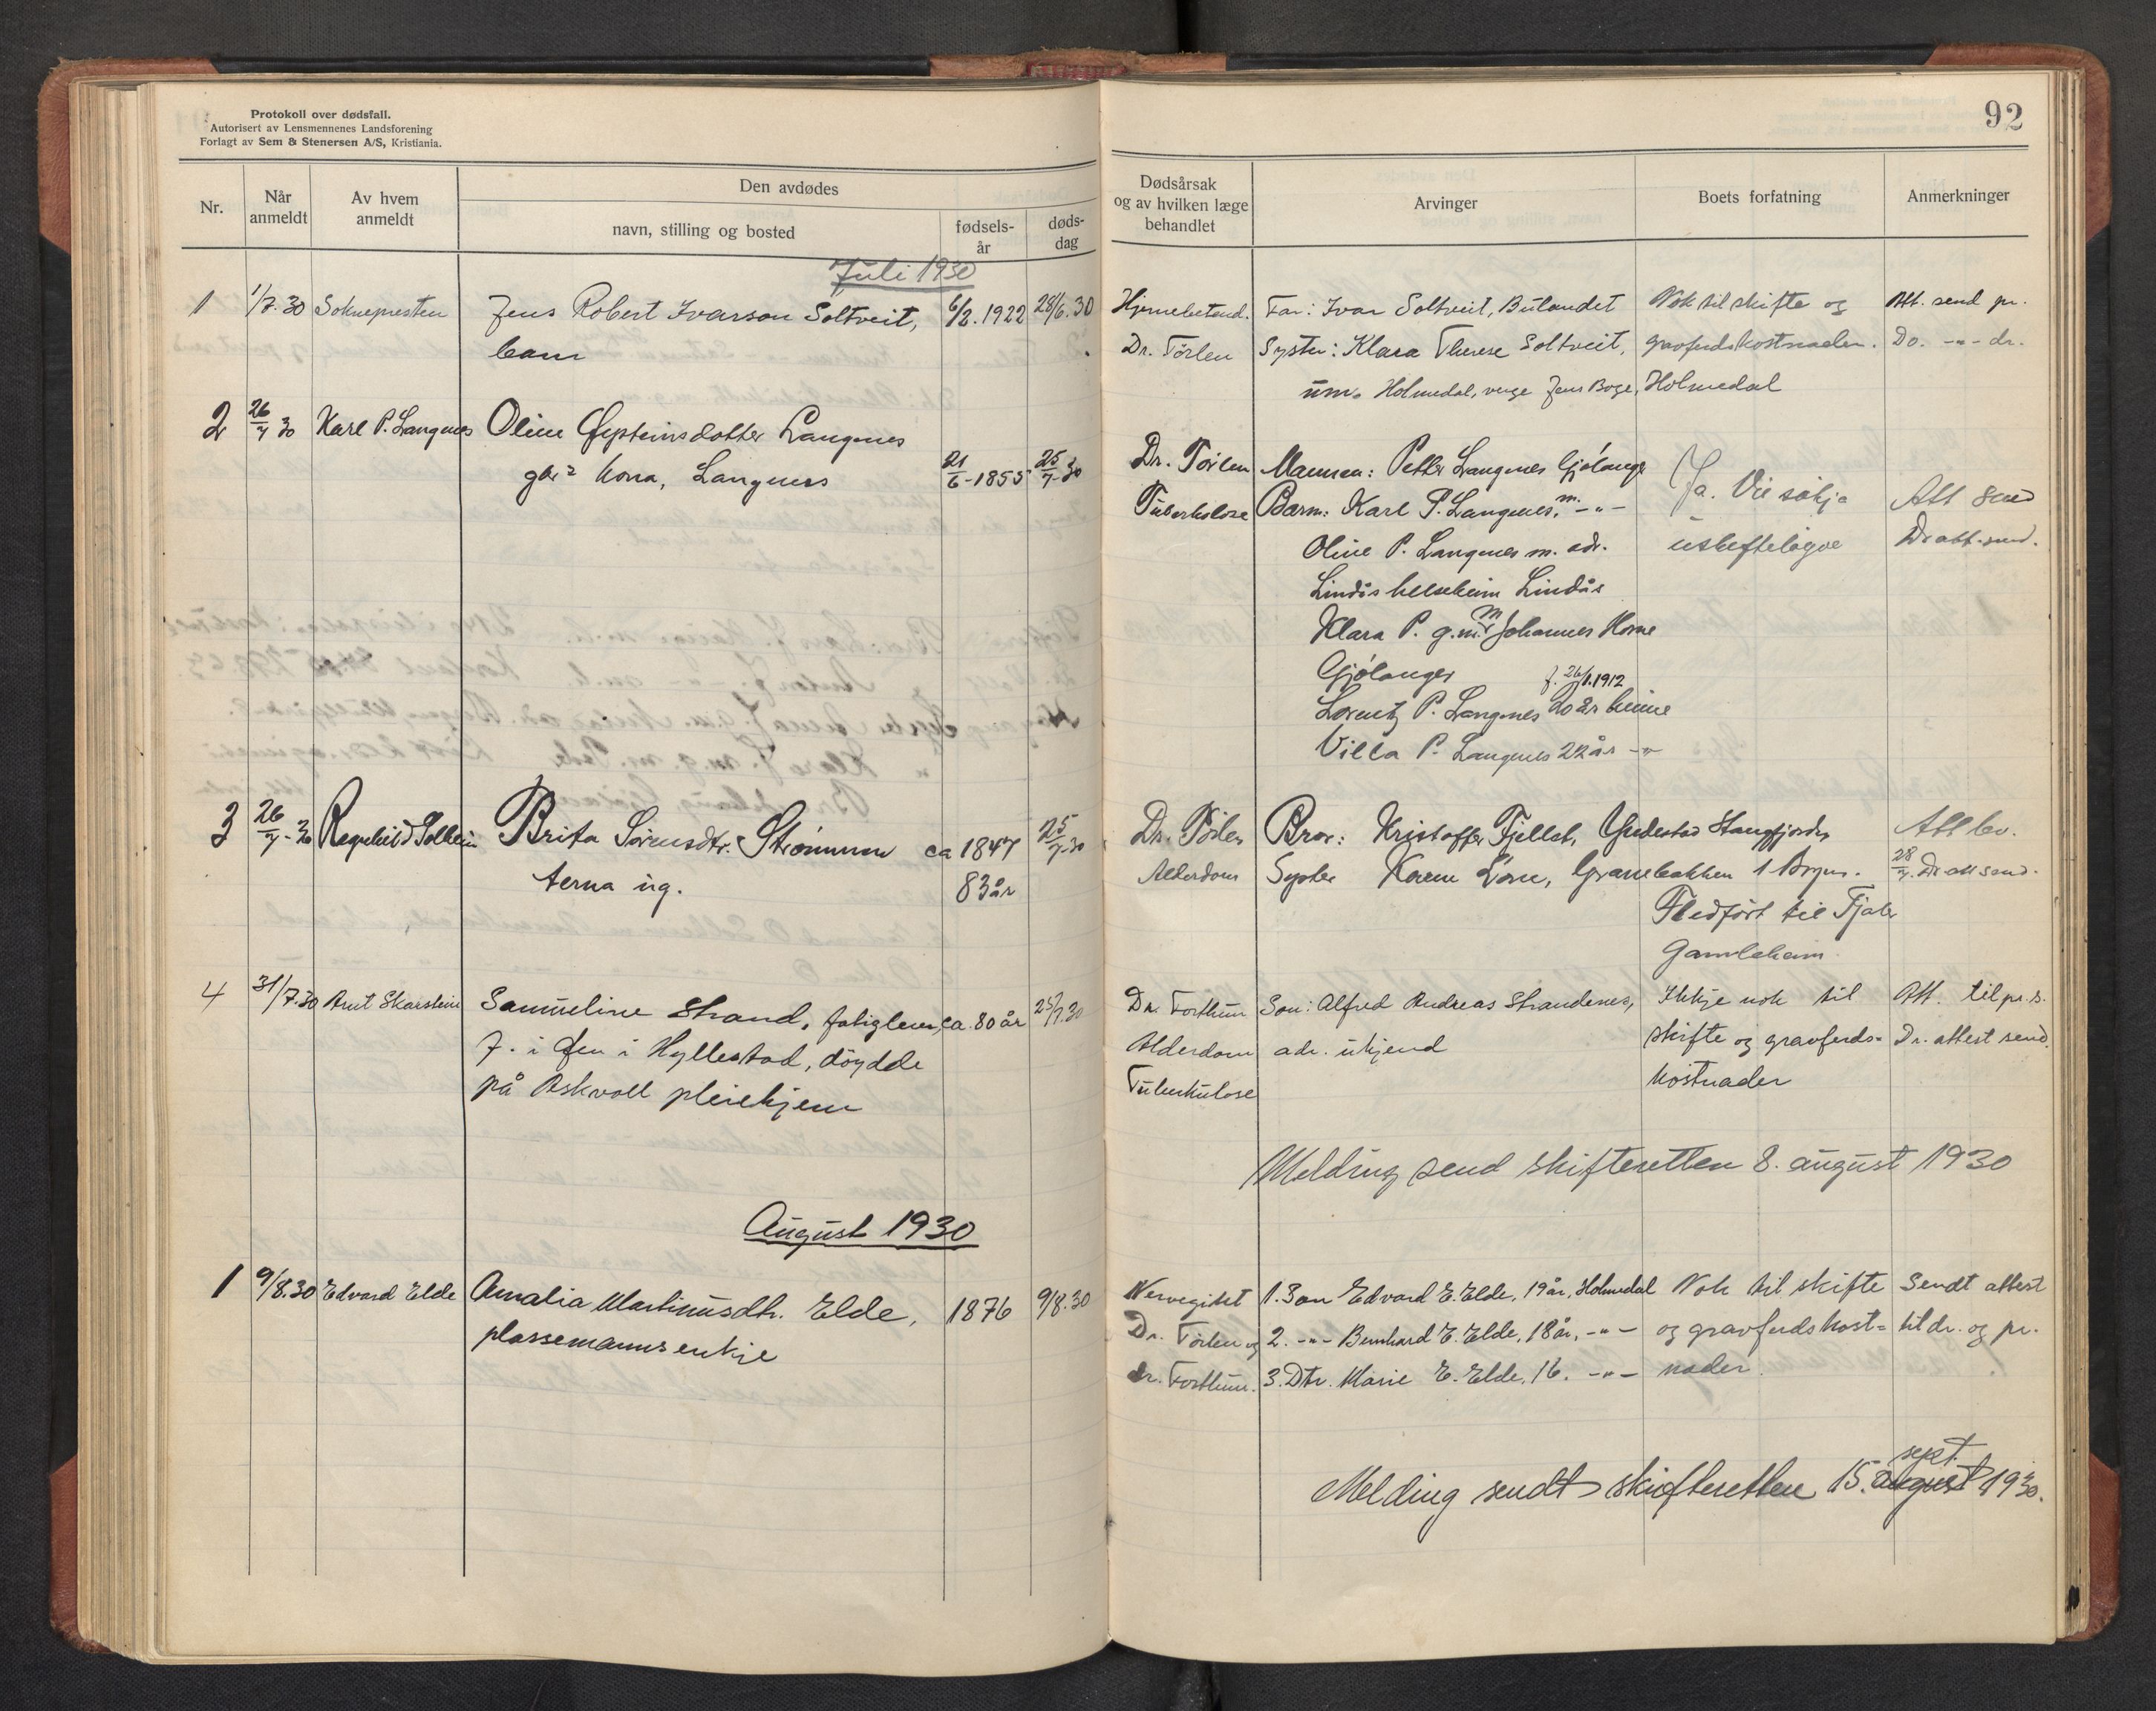 Protokoll over dødsfall.
Autorisert av Lensmennenes Landsforening
Forlagt av Sem & Stenersen A/S, Kristiania.
Nr.
Når anmeldt
Av hvem anmeldt
Den avdødes
navn, stilling og bosted
fødsels-år
døds-dag
Juli 1930
1 1/7.30 Soknepresten Jens Robert Ivarson Soltveit, 6/2.1922 28/6.30
barn
2 26/7 30 Karl P. Langnes Oline Øysteinsdotter Langnes
kona, Langnes 21/6-1855 25/7-30
3 26/7-30 Ragnhild Solheim Brita Sørensdtr. Strømmen ca 1847 25/7-30
terna ug. 83 år
4 31/7.30 Arnt Skarstein Samueline Strand, fatiglem, ca. 80 år 25/7.30
f. i Øen i Hyllestad, døydde
på Askvoll pleiehjem
August 1930
1 9/8.30 Edvard Elde Amalia Martinusdtr. Elde, 1876 9/8.30
plassemannsenkje
92
Dødsårsak og av hvilken læge behandlet
Arvinger
Boets forfatning
Anmerkninger
Hjernebetend. Far: Ivar Soltveit, Bulandet Nok til skifte og Att. send pr.
Dr. Tørlen Syster: Klara Therese Soltveit, gravferdskostnader. Do. -"- dr.
um. Holmedal, verge Jens Boge, Holmedal
Dr. Tørlen Mannen: Petter Langnes Gjølanger Ja. Vil søkje
Tuberkulose Barn: Karl P. Langnes, m. -"- uskifteløgve Att send
Oline P. Langnes m. adr. Dr att. send.
Lindås helseheim Lindås
Klara P. g.m. Johannes Horne
Gjølanger f. 26/1.1912
Lorentz P. Langnes 20 år heime
Villa P. Langnes 22 år -"-
Dr. Tørlen Bror: Kristoffer Fjellet, Stangfjorden Att lev.
Alderdom Syster Karen Løne, Granebakken 1 28/7. Dr att send.
Fledført til Fjaler
Gamleheim
Dr. Forthun Son: Alfred Andreas Strandenes, Ikkje nok til Att. til pr. s.
Alderdom adr. ukjend skifte og gravferds- Dr. attest send.
Tuberkulose kostnader
Melding send skifteretten 8. august 1930
Nervegikt 1. Son Edvard E. Elde, 19 år, Holmedal Nok til skifte Sendt attest
Dr. Tørlen og 2. -"- Bernhard E. Elde, 18 år, -"- og gravferdskost= til dr. og pr.
dr. Forthun. 3. Dtr. Marie E. Elde, 16. -"- nader
sept.
Melding sendt skifteretten 15. august 1930.